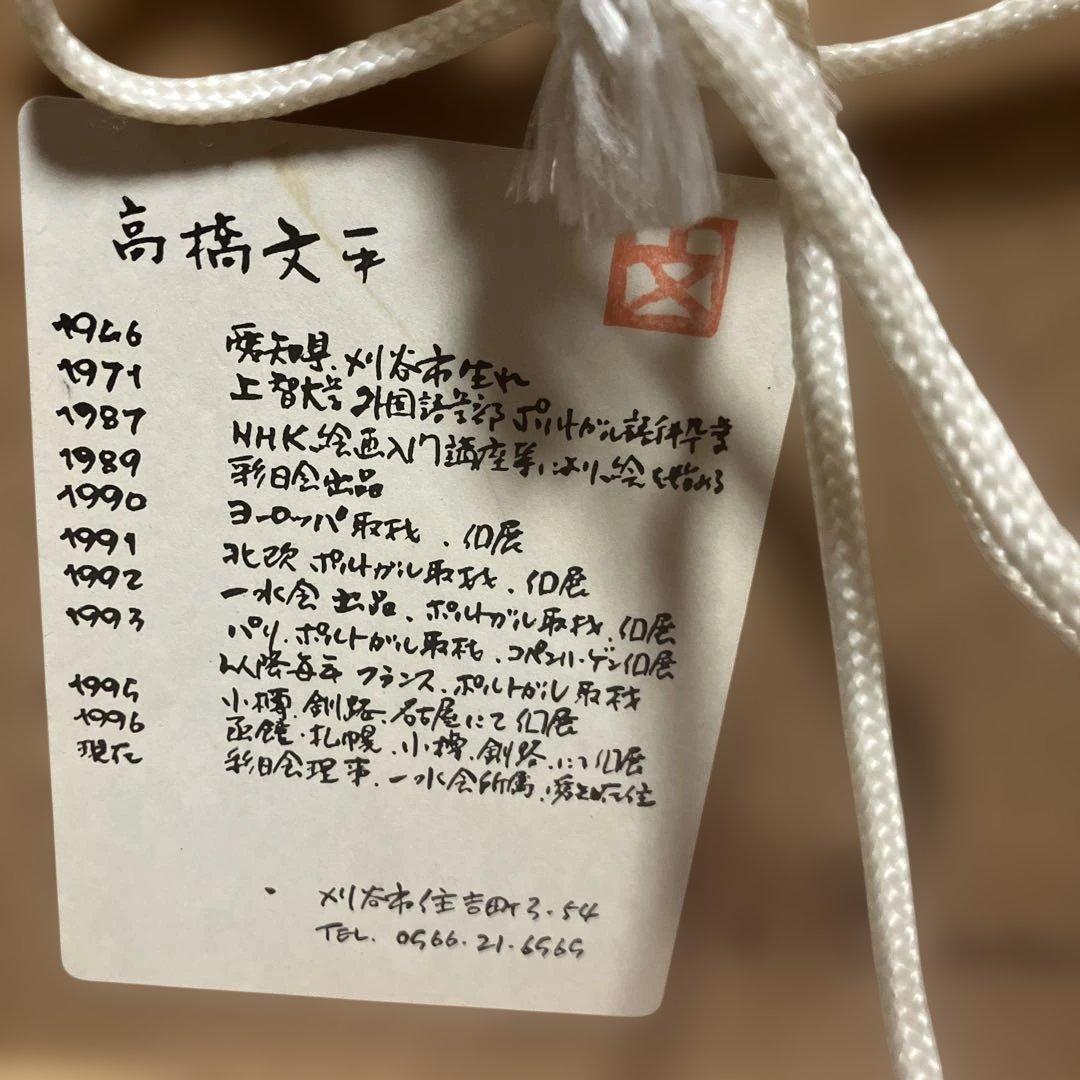 高橋文平
1946 愛知県.刈谷市生れ
1971 上智大学外国語学部ポルトガル語科卒業
1987 NHK絵画入門講座等により絵を始める
1989 彩日会出品
1990 ヨーロッパ取材.個展
1991 北欧ポルトガル取材.個展
1992 一水会出品.ポルトガル取材.個展
1993 パリ.ポルトガル取材.コペンハーゲン個展
以降毎年フランス.ポルトガル取材
1995 小樽.釧路.名古屋にて個展
1996 函館.札幌.小樽.釧路.にて個展
現在 彩日会理事.一水会所属.愛知在住
刈谷市住吉町3.54
TEL. 0566.21.6565